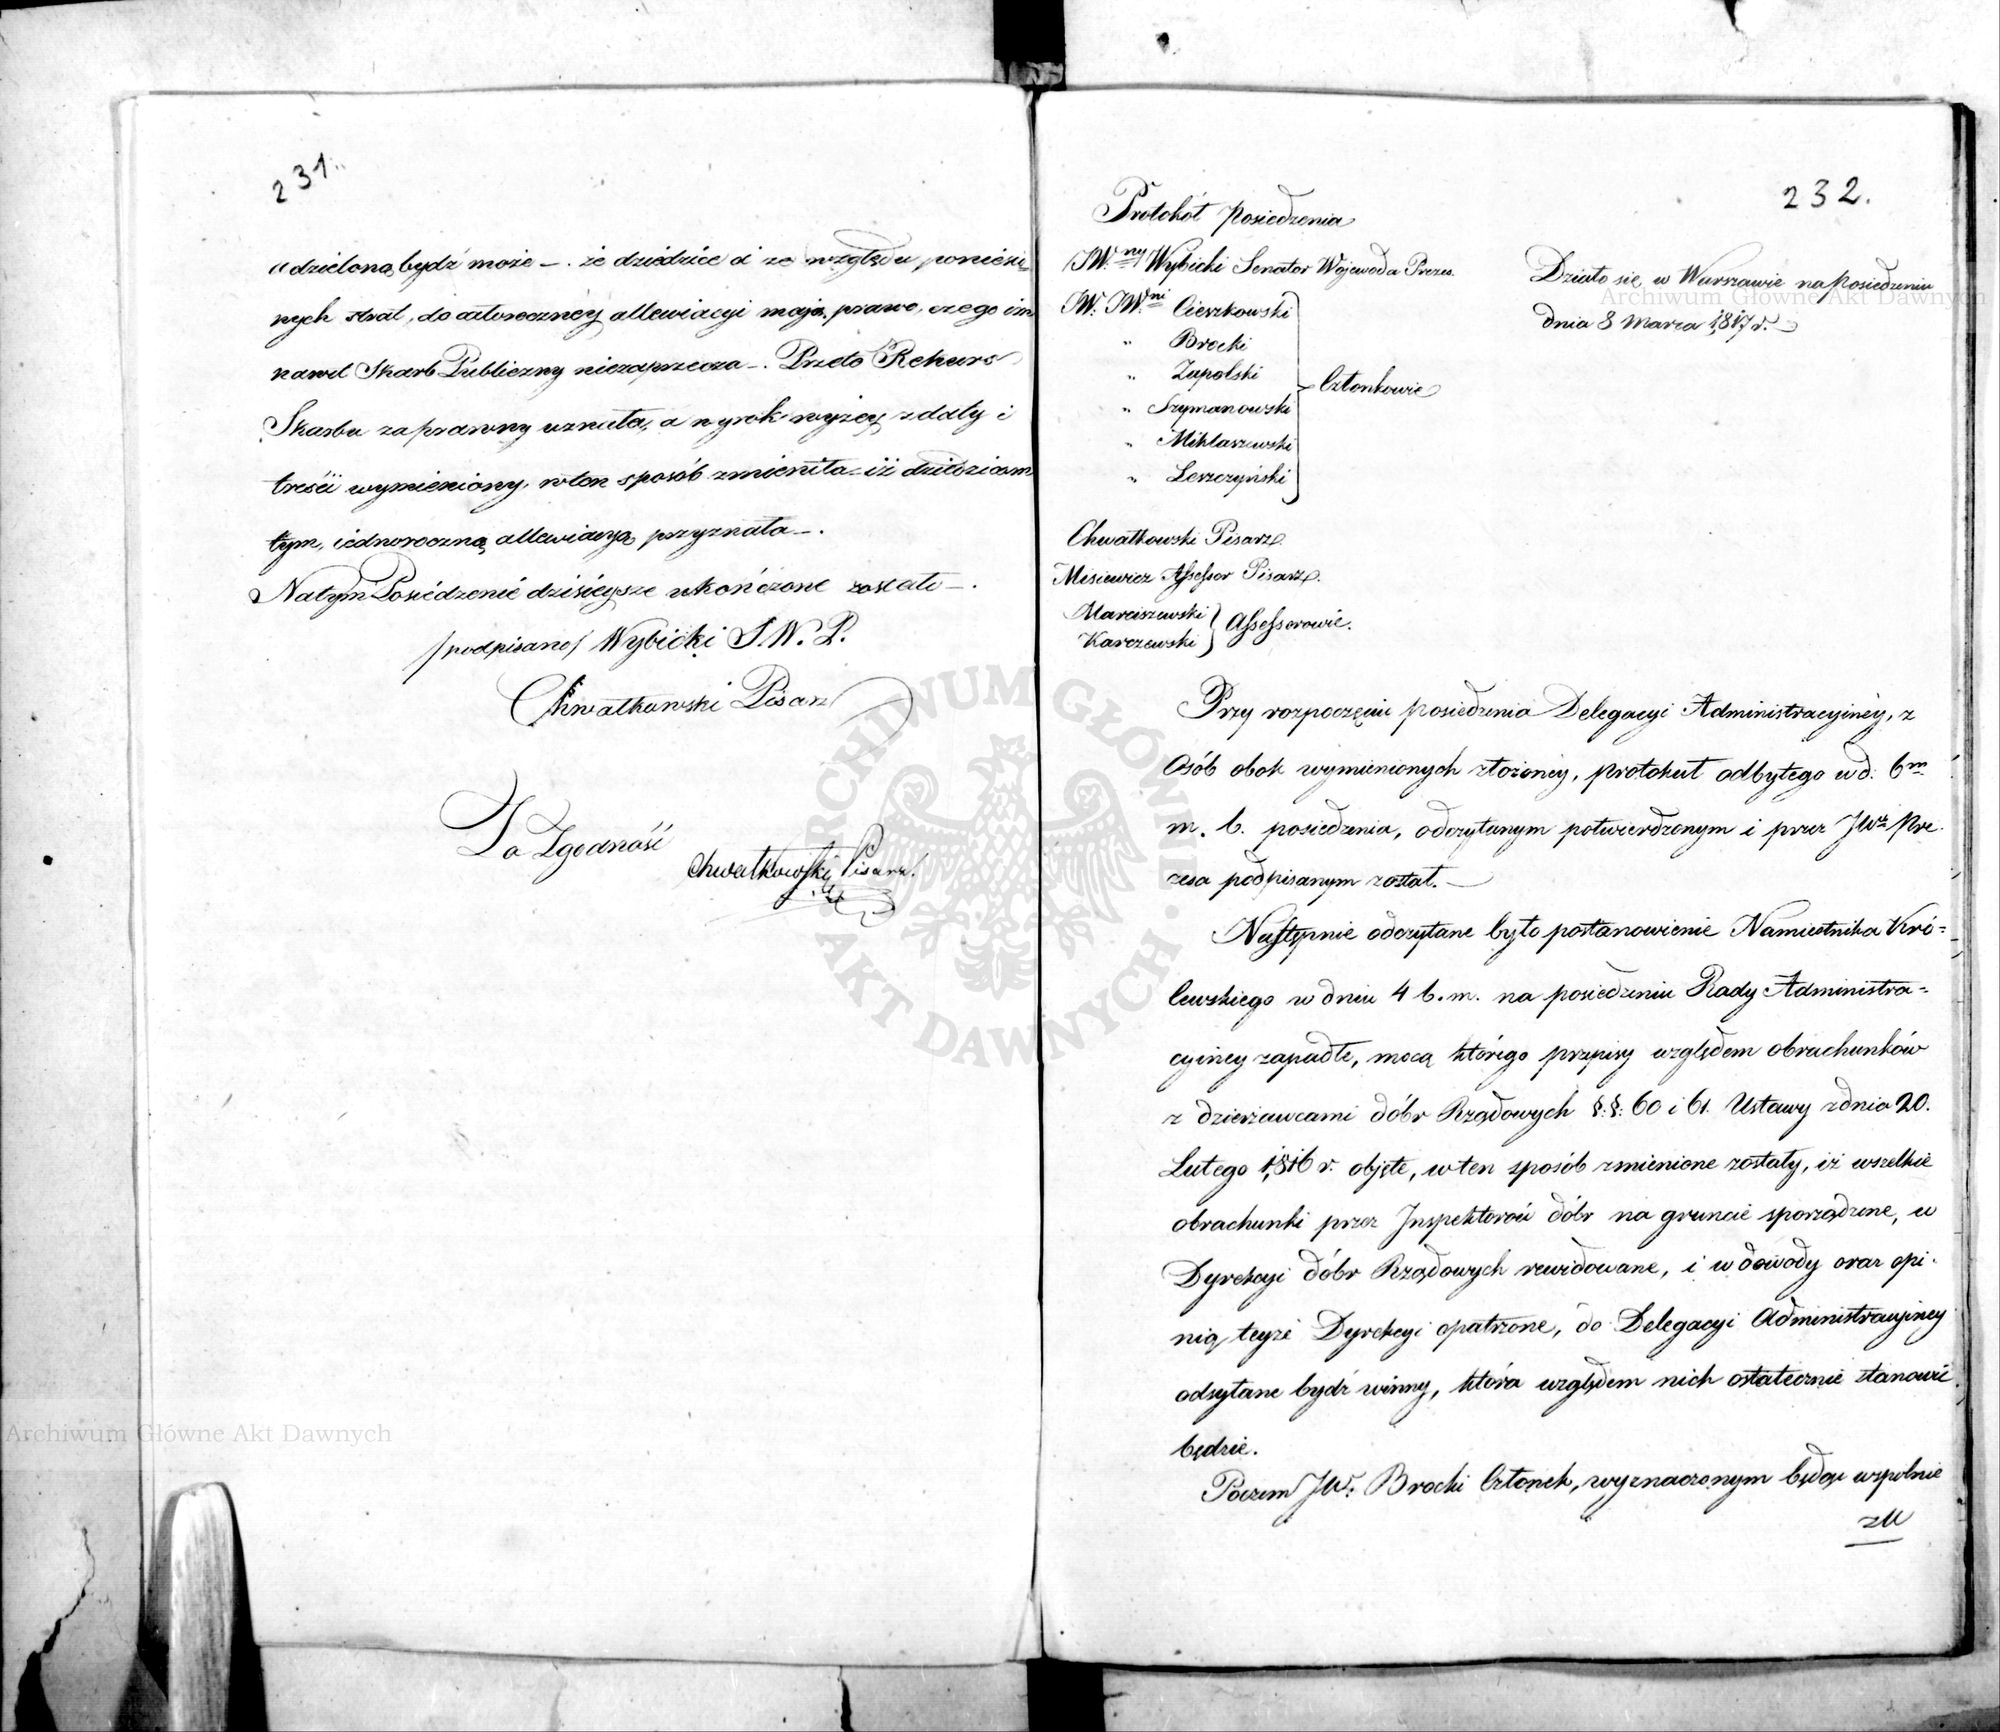 231.
udzieloną bydź może –. że dziedzice i ze względu poniesio=
nych strat, do całoroczney allewiacyi mają prawo, czego im
nawet Skarb Publiczny niezaprzecza –. Przeto Rekurs
Skarbu zaprawny uznała, a wyrok wyżey z daty i
treści wymieniony, wten sposób zmieniła – iż dziedzicom
tym, iednoroczną allewiacyą przyznała –.
Natym Posiedzenie dzisieysze ukończone zostało –.
/podpisano/ Wybicki S. W. P.
Chwatkowski Pisarz
Za Zgodność
Chwatkowski Pisarz.
232.
Protokół posiedzenia
JW.ny Wybicki Senator Wojewoda Prezes.
JW. JW.ni Cieszkowski
" Brocki
" Zapolski
" Szymanowski
" Miklaszewski
" Leszczyński
Członkowie
Chwatkowski Pisarz.
Misiewicz Assessor Pisarz.
Marciszewski
Karczewski
Assessorowie.
Działo się w Warszawie na posiedzeniu
dnia 8 Marca 1817 r.
Przy rozpoczęciu posiedzenia Delegacyi Administracyiney, z
Osób obok wymienionych złożoney, protokuł odbytego w d: 6m
m. b. posiedzenia, odczytanym potwierdzonym i przez JWo Pre
zesa podpisanym został. –
Następnie odczytane było postanowienie Namiestnika Kró=
lewskiego w dniu 4 b. m. na posiedzeniu Rady Administra=
cyiney zapadłe, mocą którego przepisy względem obrachunków
z dzierżawcami dóbr Rządowych §: §: 60 i 61. Ustawy z dnia 20.
Lutego 1816 r. objęte, w ten sposób zmienione zostały, iż wszelkie
obrachunki przez Inspektorów dóbr na gruncie sporządzone, w
Dyrekcyi dóbr Rządowych rewidowane, i w dowody oraz opi.
nią teyże Dyrekcyi opatrzone, do Delegacyi Administracyiney
odsyłane bydź winny, która względem nich ostatecznie stanowić
będzie.
Poczem JW: Brocki Członek, wyznaczonym będąc wspolnie
z JW
Archiwum Główne Akt Dawnych
Archiwum Główne Akt Dawnych
ARCHIWUM GŁÓWNE · AKT DAWNYCH ·